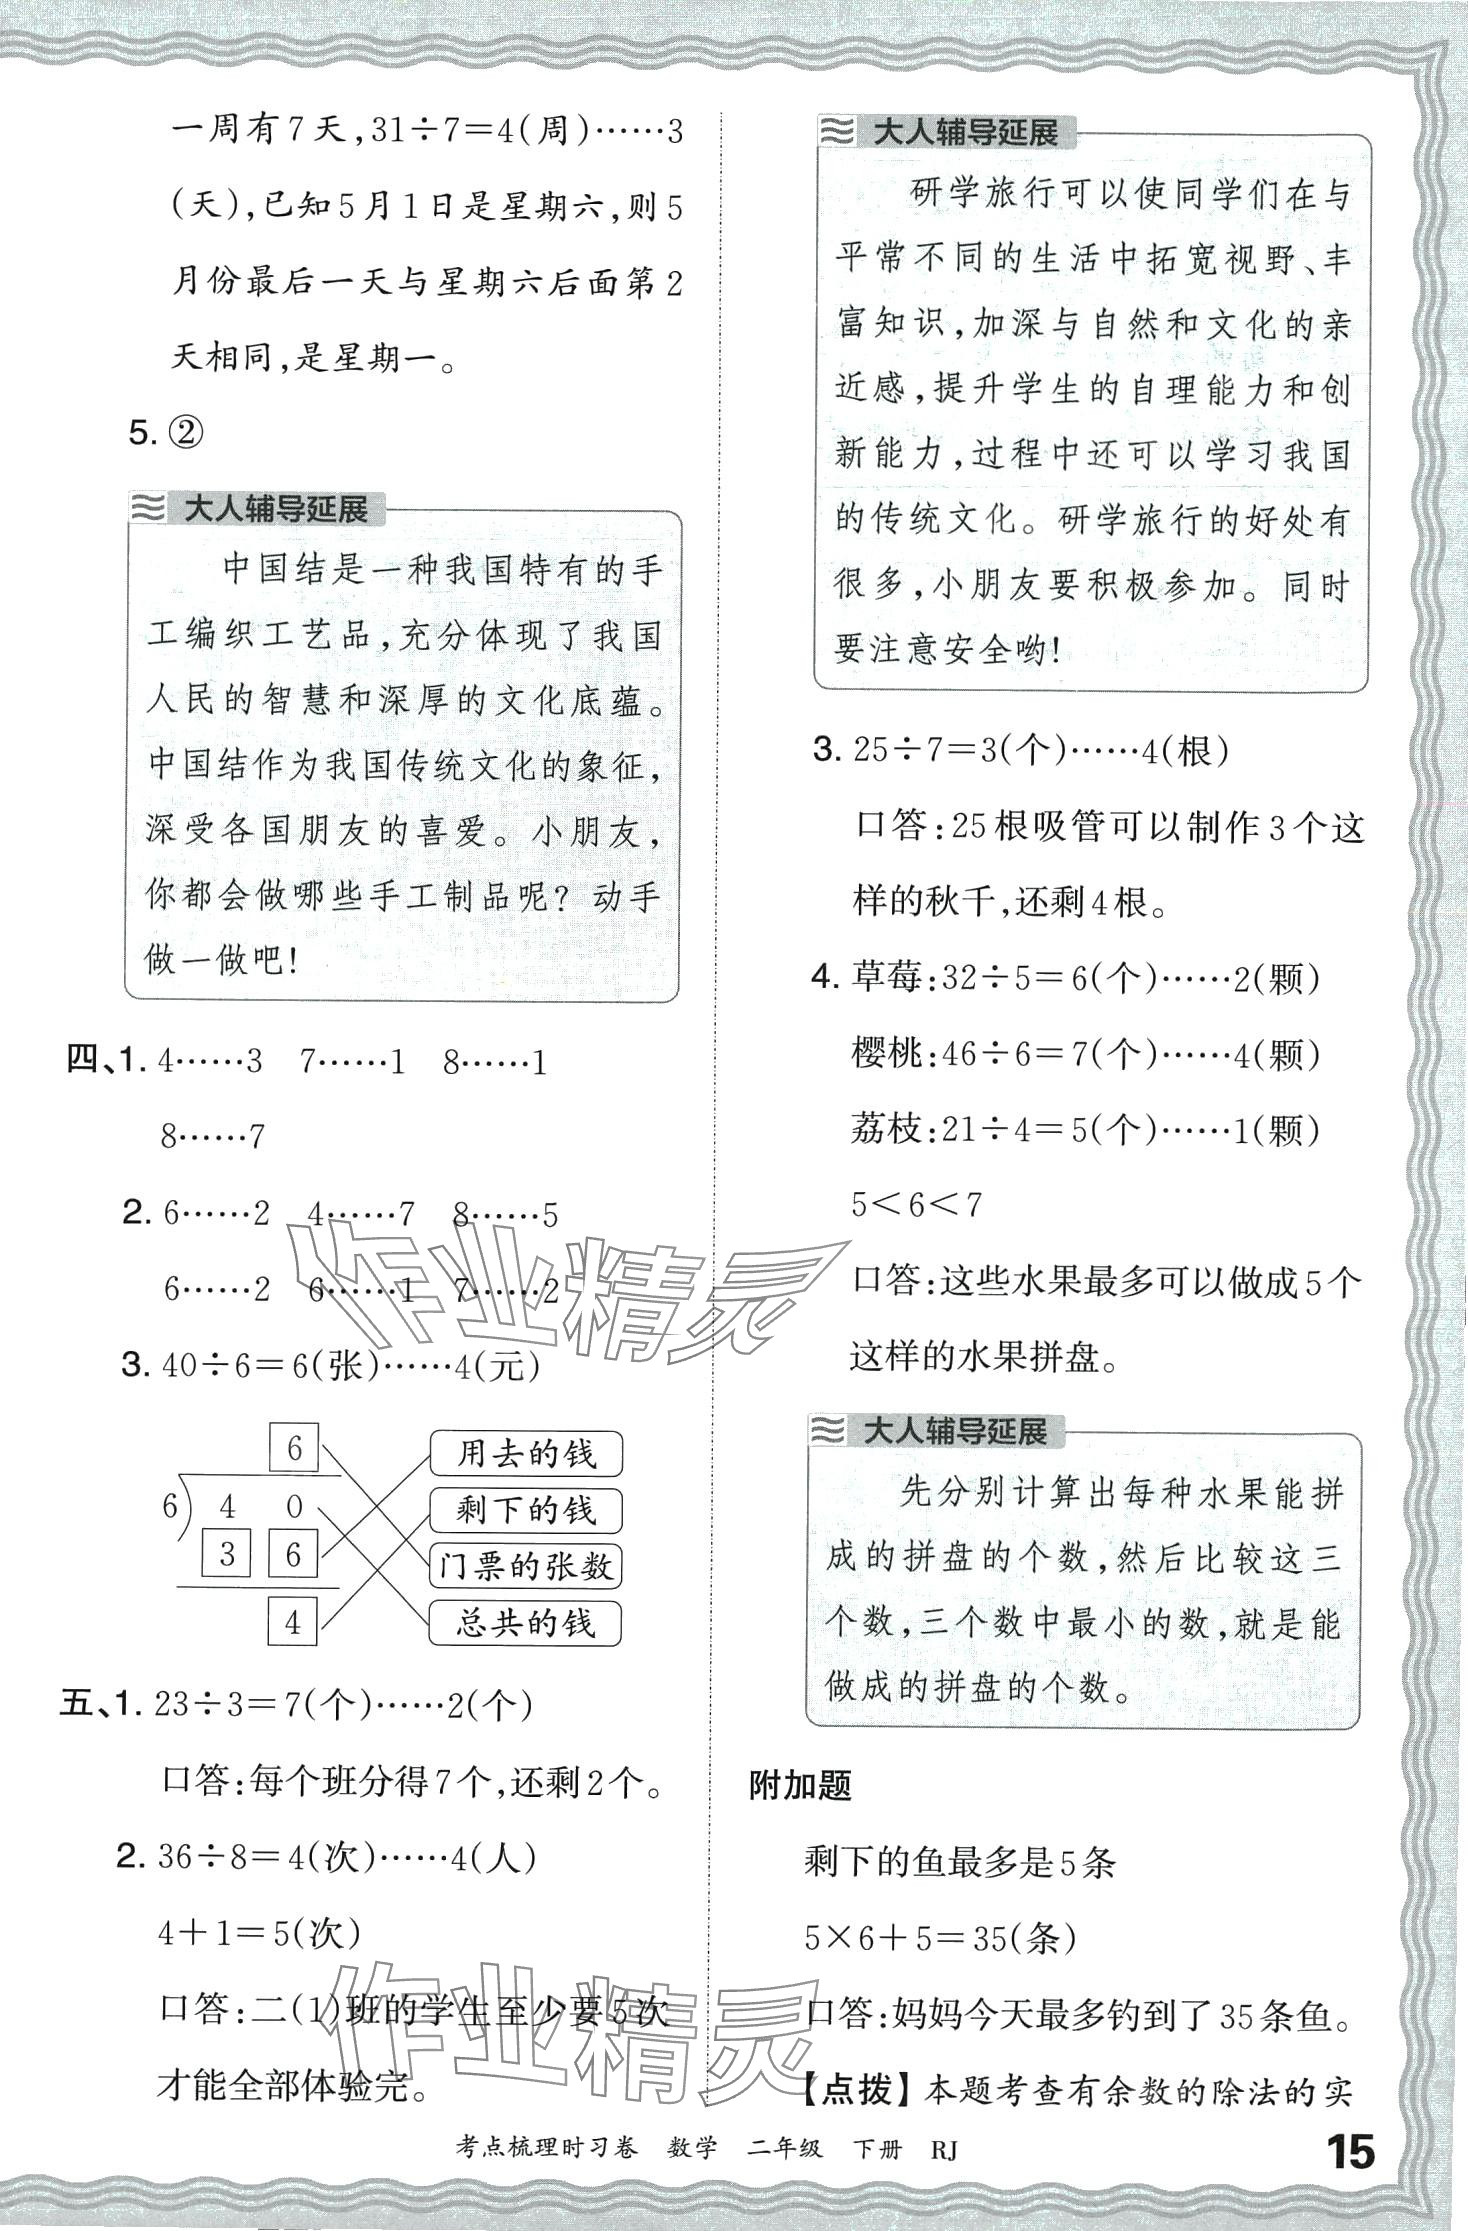 一周有7天,31÷7=4(周)……3
(天),已知5月1日是星期六,则5
月份最后一天与星期六后面第2
天相同,是星期一。
5. ②
大人辅导延展
中国结是一种我国特有的手
工编织工艺品,充分体现了我国
人民的智慧和深厚的文化底蕴。
中国结作为我国传统文化的象征,
深受各国朋友的喜爱。小朋友,
你都会做哪些手工制品呢?动手
做一做吧!
四、1. 4……3 7……1 8……1
8……7
2. 6……2 4……7 8……5
6……2 6……1 7……2
3. 40÷6=6(张)……4(元)
6 用去的钱
6 4 0 剩下的钱
3 6 门票的张数
4 总共的钱
五、1. 23÷3=7(个)……2(个)
口答:每个班分得7个,还剩2个。
2. 36÷8=4(次)……4(人)
4+1=5(次)
口答:二(1)班的学生至少要5次
才能全部体验完。
大人辅导延展
研学旅行可以使同学们在与
平常不同的生活中拓宽视野、丰
富知识,加深与自然和文化的亲
近感,提升学生的自理能力和创
新能力,过程中还可以学习我国
的传统文化。研学旅行的好处有
很多,小朋友要积极参加。同时
要注意安全哟!
3. 25÷7=3(个)……4(根)
口答:25根吸管可以制作3个这
样的秋千,还剩4根。
4. 草莓:32÷5=6(个)……2(颗)
樱桃:46÷6=7(个)……4(颗)
荔枝:21÷4=5(个)……1(颗)
5<6<7
口答:这些水果最多可以做成5个
这样的水果拼盘。
大人辅导延展
先分别计算出每种水果能拼
成的拼盘的个数,然后比较这三
个数,三个数中最小的数,就是能
做成的拼盘的个数。
附加题
剩下的鱼最多是5条
5×6+5=35(条)
口答:妈妈今天最多钓到了35条鱼。
【点拨】本题考查有余数的除法的实
作业精灵
作业精灵
考点梳理时习卷 数学 二年级 下册 RJ
15